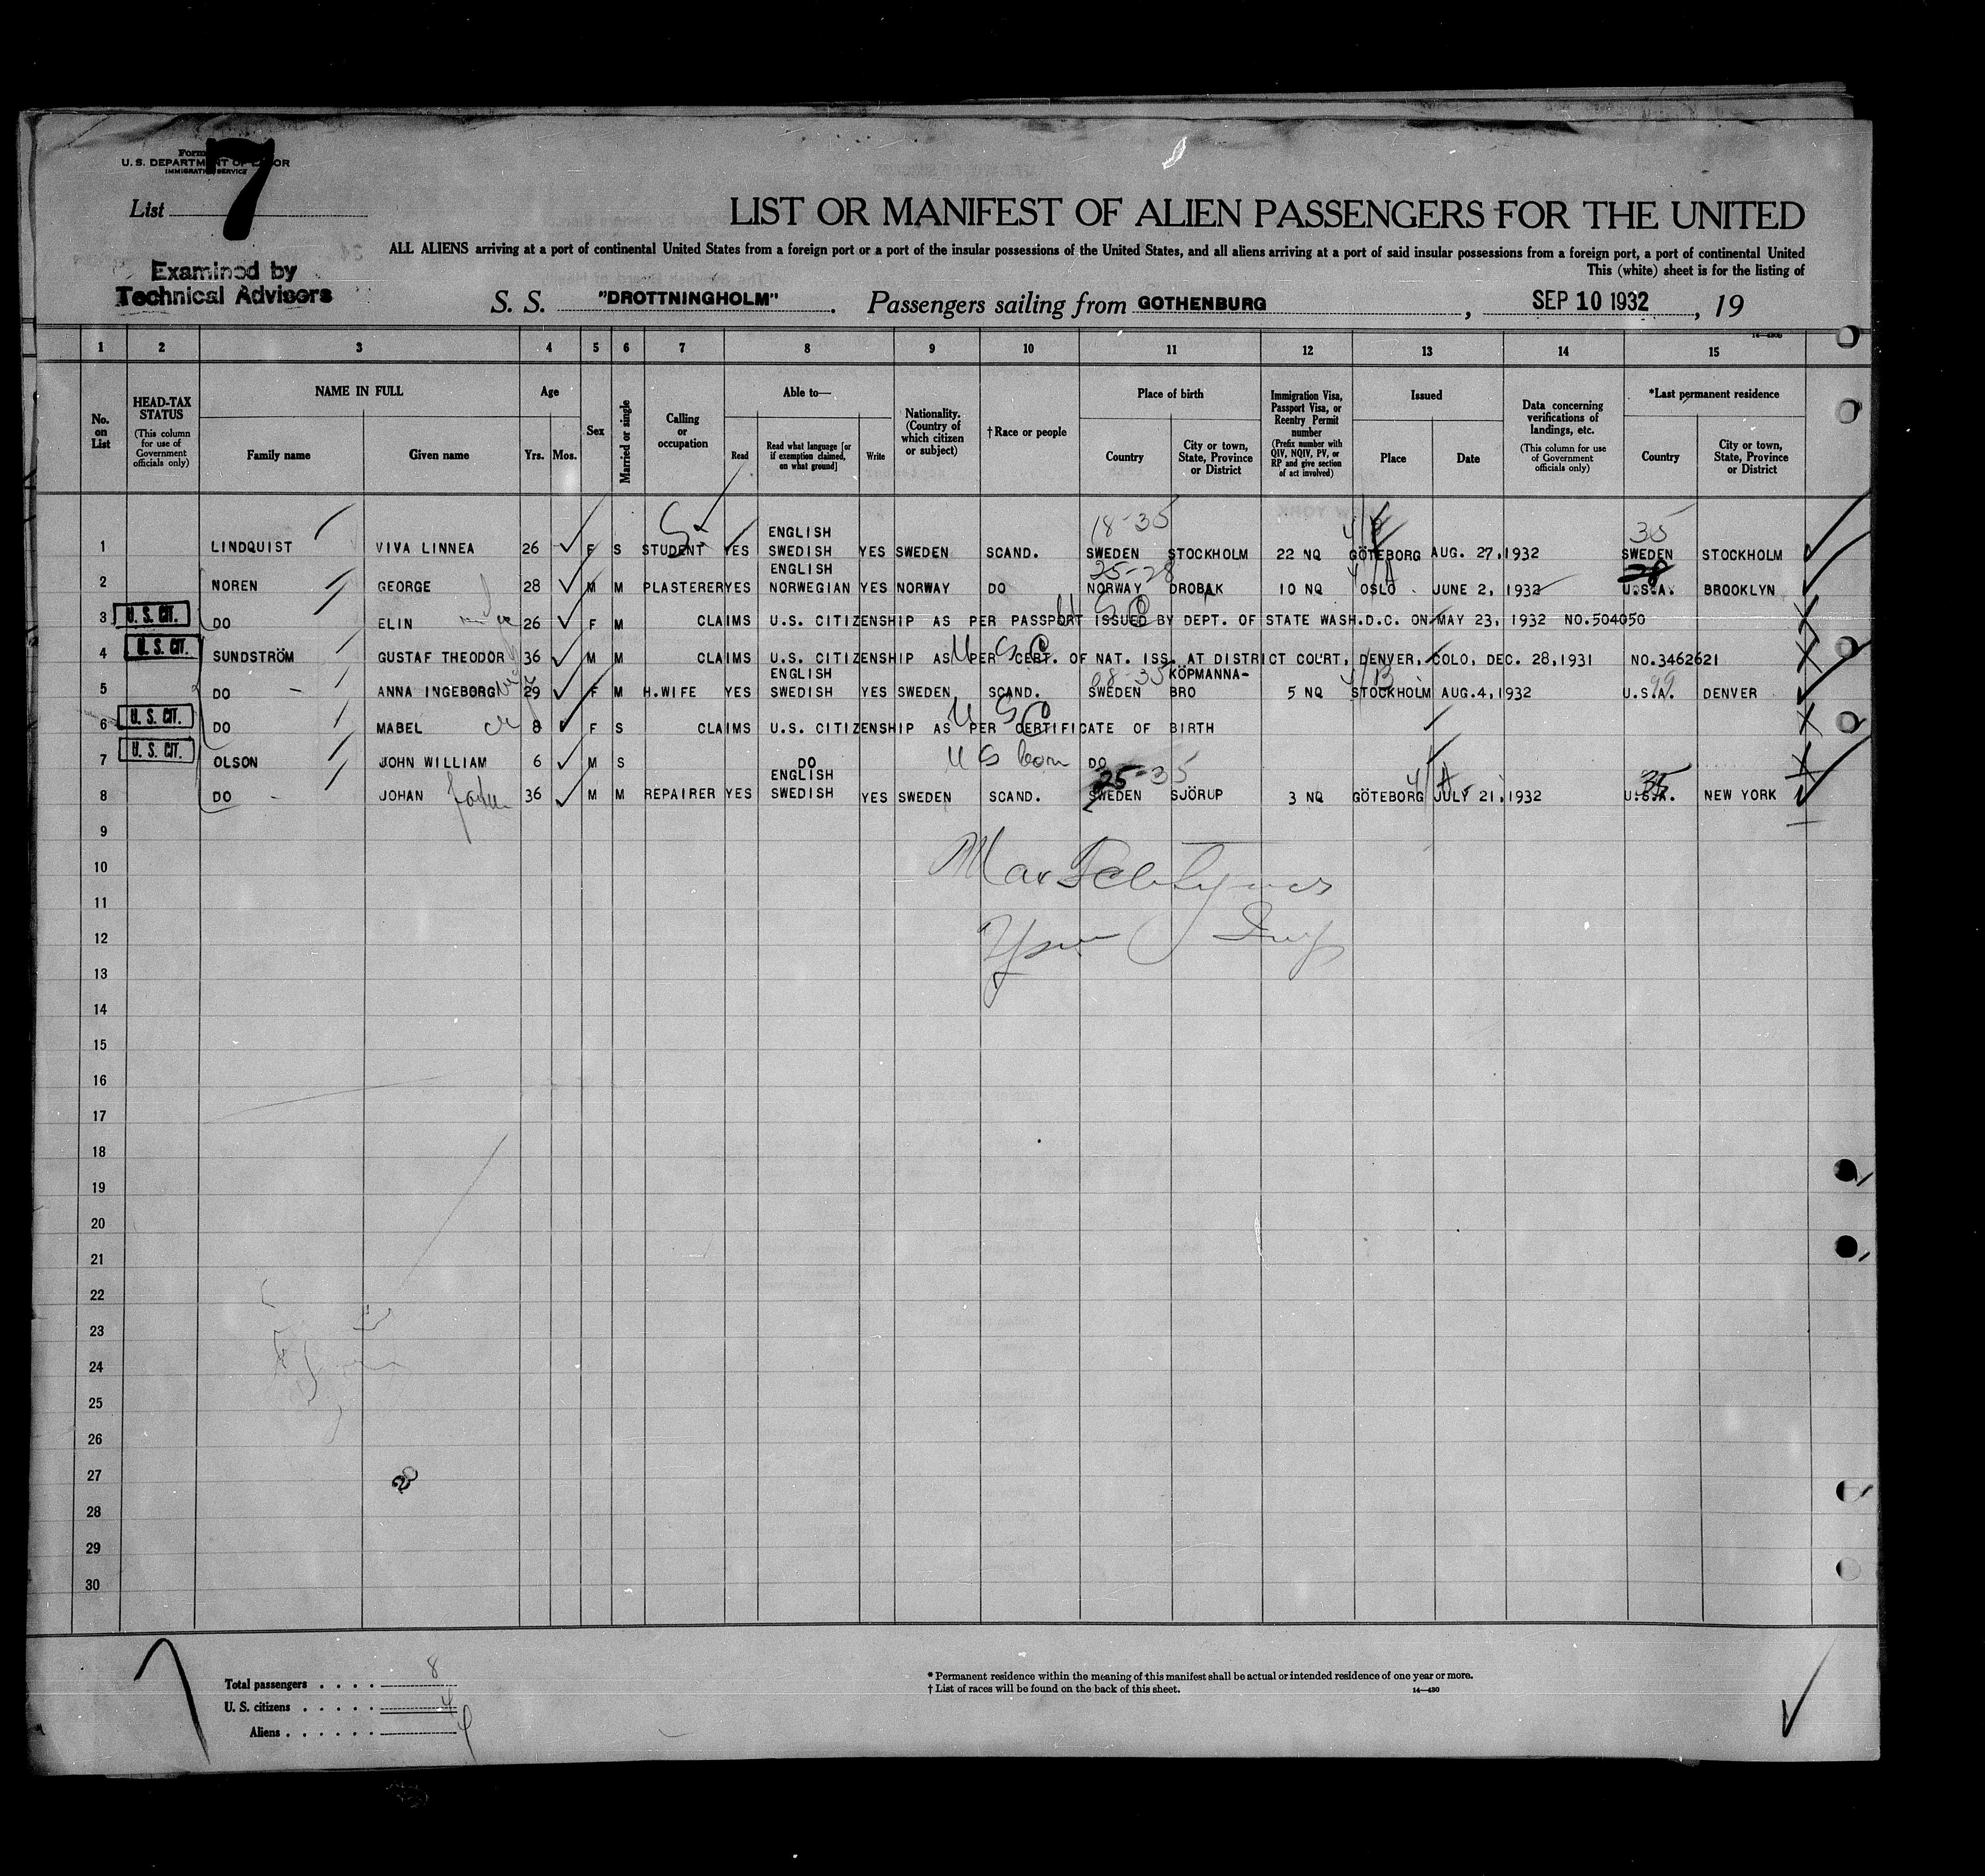 Form
U. S. DEPARTMENT OF LABOR
IMMIGRATION SERVICE
List 7
LIST OR MANIFEST OF ALIEN PASSENGERS FOR THE UNITED
ALL ALIENS arriving at a port of continental United States from a foreign port or a port of the insular possessions of the United States, and all aliens arriving at a port of said insular possessions from a foreign port, a port of continental United
This (white) sheet is for the listing of
Examined by
Technical Advisors
S. S. "DROTTNINGHOLM". Passengers sailing from GOTHENBURG, SEP 10 1932, 19
14-430
1 2 3 4 5 6 7 8 9 10 11 12 13 14 15
No. on List
HEAD-TAX STATUS (This column for use of Government officials only)
NAME IN FULL
Family name Given name
Age
Yrs. Mos.
Sex
Married or single
Calling or occupation
Able to—
Read Read what language [or if exemption claimed, on what ground] Write
Nationality. (Country of which citizen or subject)
†Race or people
Place of birth
Country City or town, State, Province or District
Immigration Visa, Passport Visa, or Reentry Permit number (Prefix number with QIV, NQIV, PV, or RP and give section of act involved)
Issued
Place Date
Data concerning verifications of landings, etc. (This column for use of Government officials only)
*Last permanent residence
Country City or town, State, Province or District
18-35 35
1 LINDQUIST VIVA LINNEA 26 F S STUDENT YES ENGLISH SWEDISH YES SWEDEN SCAND. SWEDEN STOCKHOLM 22 NQ GÖTEBORG AUG. 27,1932 SWEDEN STOCKHOLM
25-28 28
2 NOREN GEORGE 28 M M PLASTERER YES ENGLISH NORWEGIAN YES NORWAY DO NORWAY DROBAK 10 NQ OSLO JUNE 2, 1932 U.S.A. BROOKLYN
3 U. S. CIT. DO ELIN 26 F M CLAIMS U.S. CITIZENSHIP AS PER PASSPORT ISSUED BY DEPT. OF STATE WASH.D.C. ON MAY 23, 1932 NO.504050
U S C
4 U. S. CIT. SUNDSTRÖM GUSTAF THEODOR 36 M M CLAIMS U.S. CITIZENSHIP AS PER CERT. OF NAT. ISS. AT DISTRICT COURT, DENVER, COLO, DEC. 28,1931 NO.3462621
U S C
5 DO - ANNA INGEBORG 29 F M H.WIFE YES ENGLISH SWEDISH YES SWEDEN SCAND. SWEDEN KÖPMANNA-BRO 5 NQ STOCKHOLM AUG.4,1932 U.S.A. DENVER
6 U. S. CIT. DO MABEL 8 F S CLAIMS U.S. CITIZENSHIP AS PER CERTIFICATE OF BIRTH
U S C
7 U. S. CIT. OLSON JOHN WILLIAM 6 M S DO U S born DO
25-35 35
8 DO - JOHAN father 36 M M REPAIRER YES ENGLISH SWEDISH YES SWEDEN SCAND. SWEDEN SJÖRUP 3 NQ GÖTEBORG JULY 21,1932 U.S.A. NEW YORK
9
10
11
12
13
14
15
16
17
18
19
20
21
22
23
24
25
26
27
28
29
30
Total passengers . . . . 8
U. S. citizens . . . . . 4
Aliens . . . . . . 4
* Permanent residence within the meaning of this manifest shall be actual or intended residence of one year or more.
† List of races will be found on the back of this sheet.
14-430